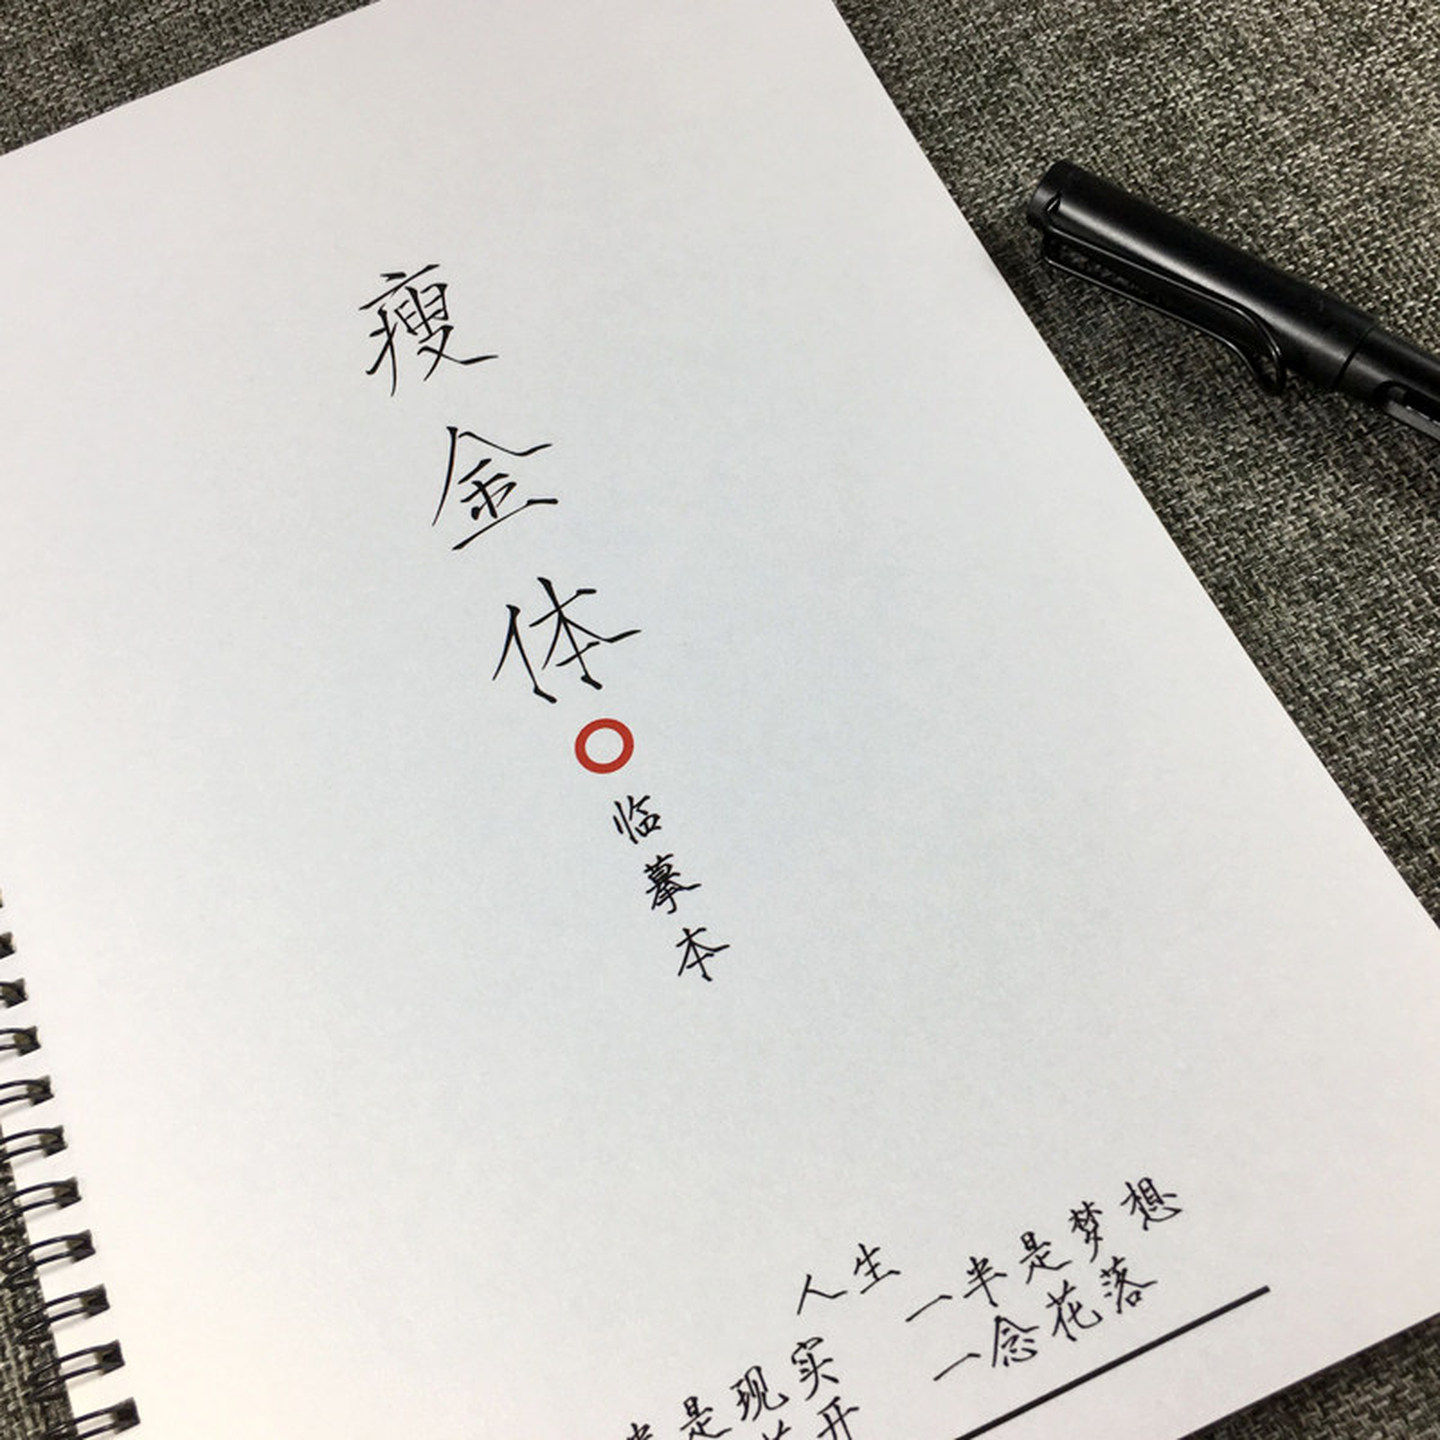 瘦金体
临摹本
人生
一半是梦想
是现实
一念花落
开